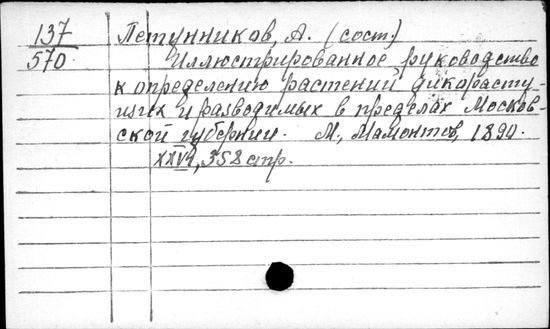 137 Петунников, А. (сост.)
570 Иллюстрированное руководство
к определению растений дикорасту-
щих и разводимых в пределах Москов-
ской губернии. М., Мамонтов, 1890.
XXVI, 358 стр.